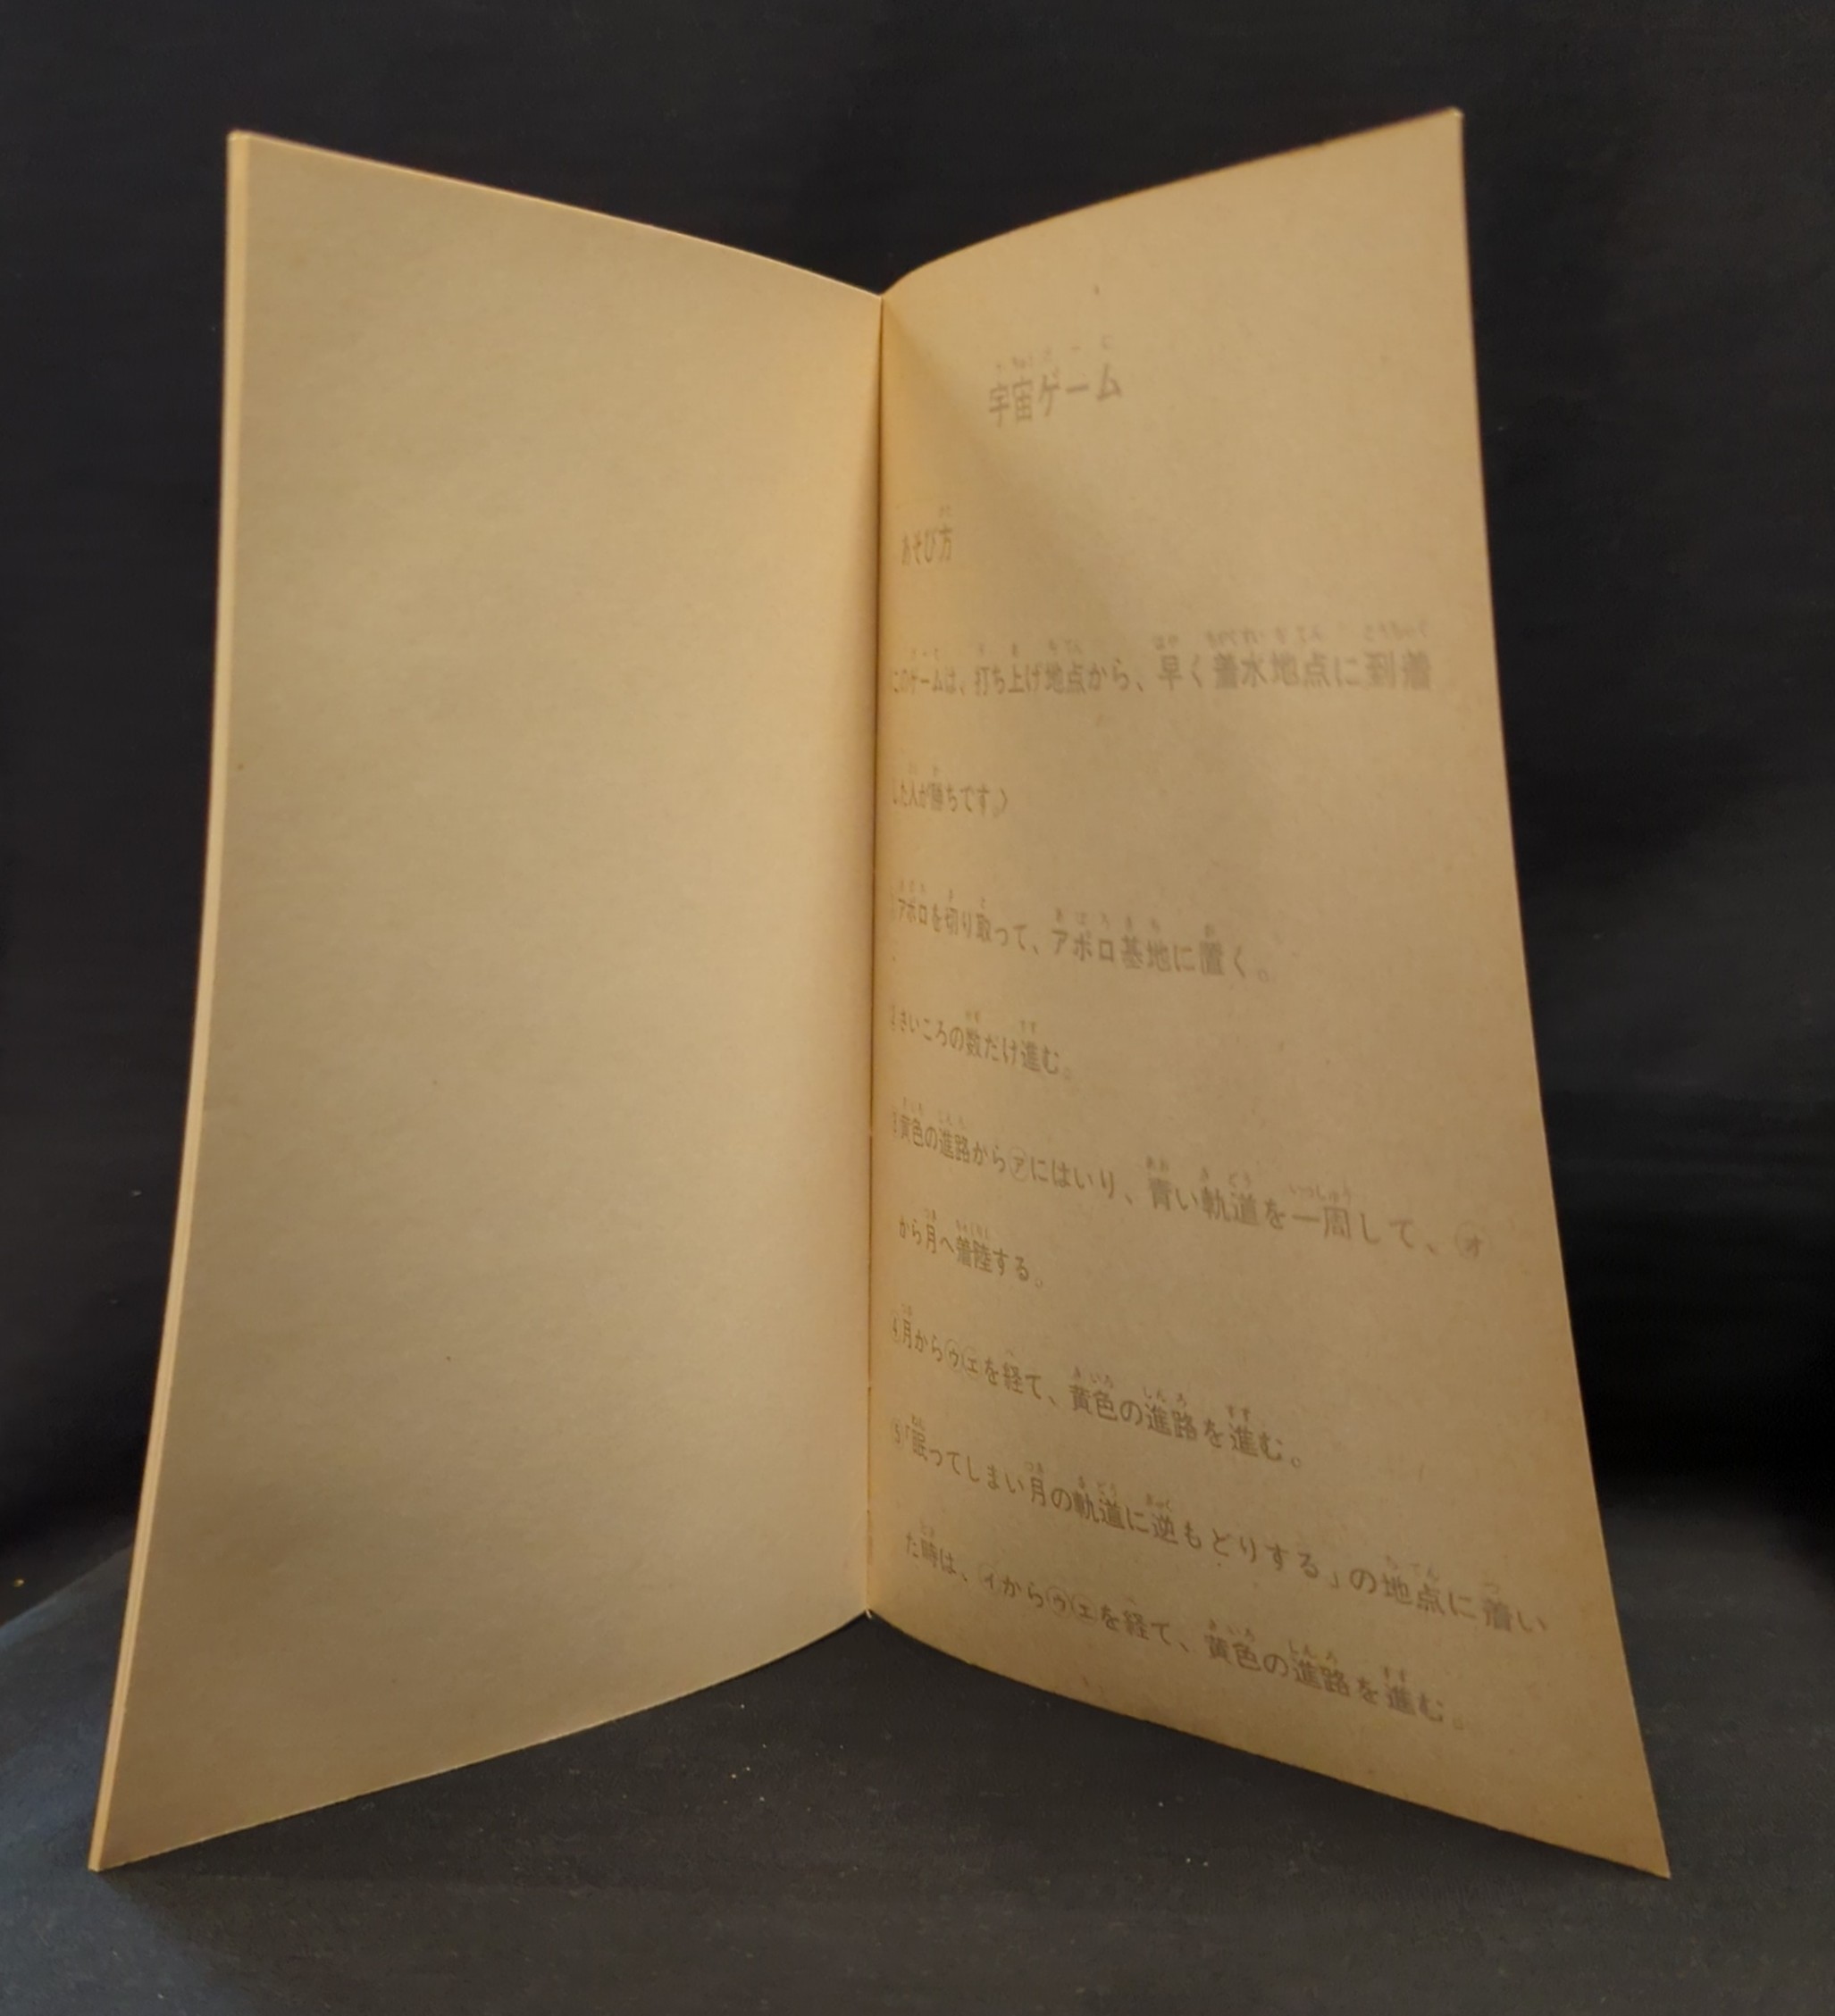 宇宙ゲーム
あそび方
このゲームは、打ち上げ地点から、早く着水地点に到着
した人が勝ちです。〉
アポロを切り取って、アポロ基地に置く。
②さいころの数だけ進む。
③黄色の進路から㋐にはいり、青い軌道を一周して、㋔
から月へ着陸する。
④月から㋒㋓を経て、黄色の進路を進む。
⑤「眠ってしまい月の軌道に逆もどりする」の地点に着い
た時は、㋑から㋒㋓を経て、黄色の進路を進む。